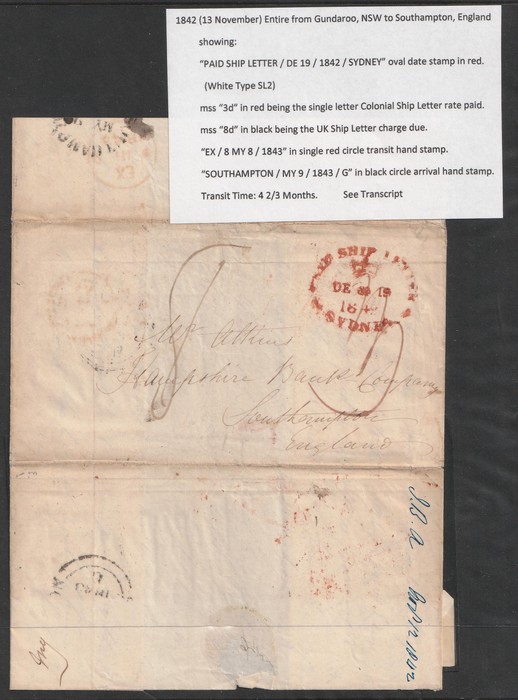 1842 (13 November) Entire from Gundaroo, NSW to Southampton, England
showing:
“PAID SHIP LETTER / DE 19 / 1842 / SYDNEY” oval date stamp in red.
(White Type SL2)
mss “3d” in red being the single letter Colonial Ship Letter rate paid.
mss “8d” in black being the UK Ship Letter charge due.
“EX / 8 MY 8 / 1843” in single red circle transit hand stamp.
“SOUTHAMPTON / MY 9 / 1843 / G” in black circle arrival hand stamp.
Transit Time: 4 2/3 Months. See Transcript
SHIP LETTER
DE 19
184
SYDNEY
8
3
Mr Atkins
Hampshire Bank Company
Southampton
England